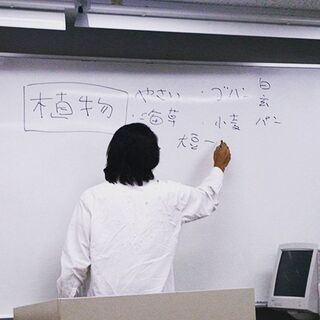 植物
やさい ・ゴハン 白
玄
・海草 ・小麦 パン
大豆ー